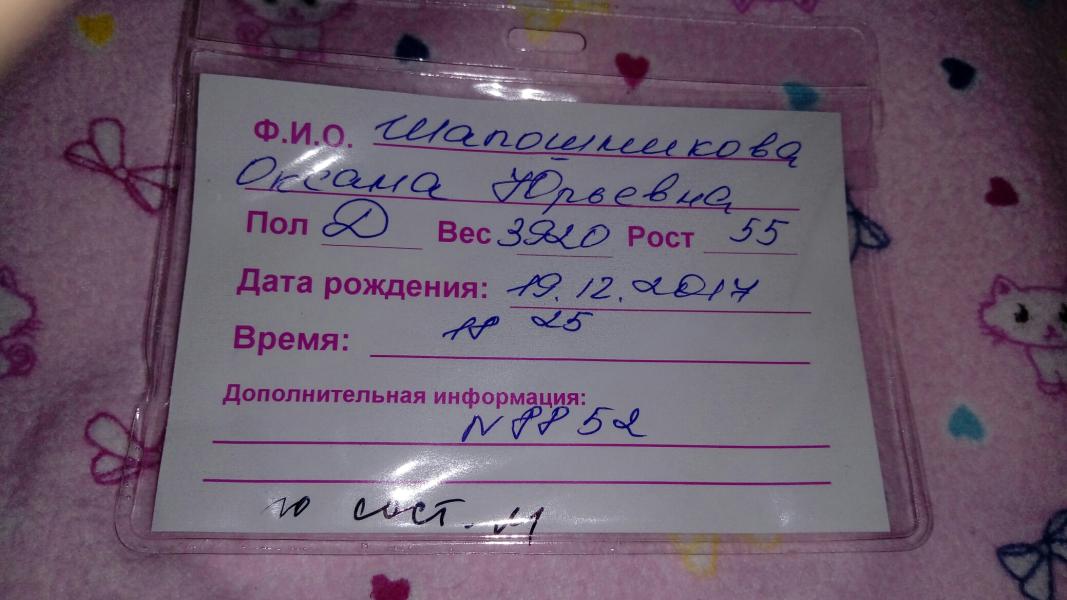 Ф.И.О. Шапошникова
Оксана Юрьевна
Пол Д Вес 3920 Рост 55
Дата рождения: 19.12.2017
Время: 18 25
Дополнительная информация:
N 8852
по сост.